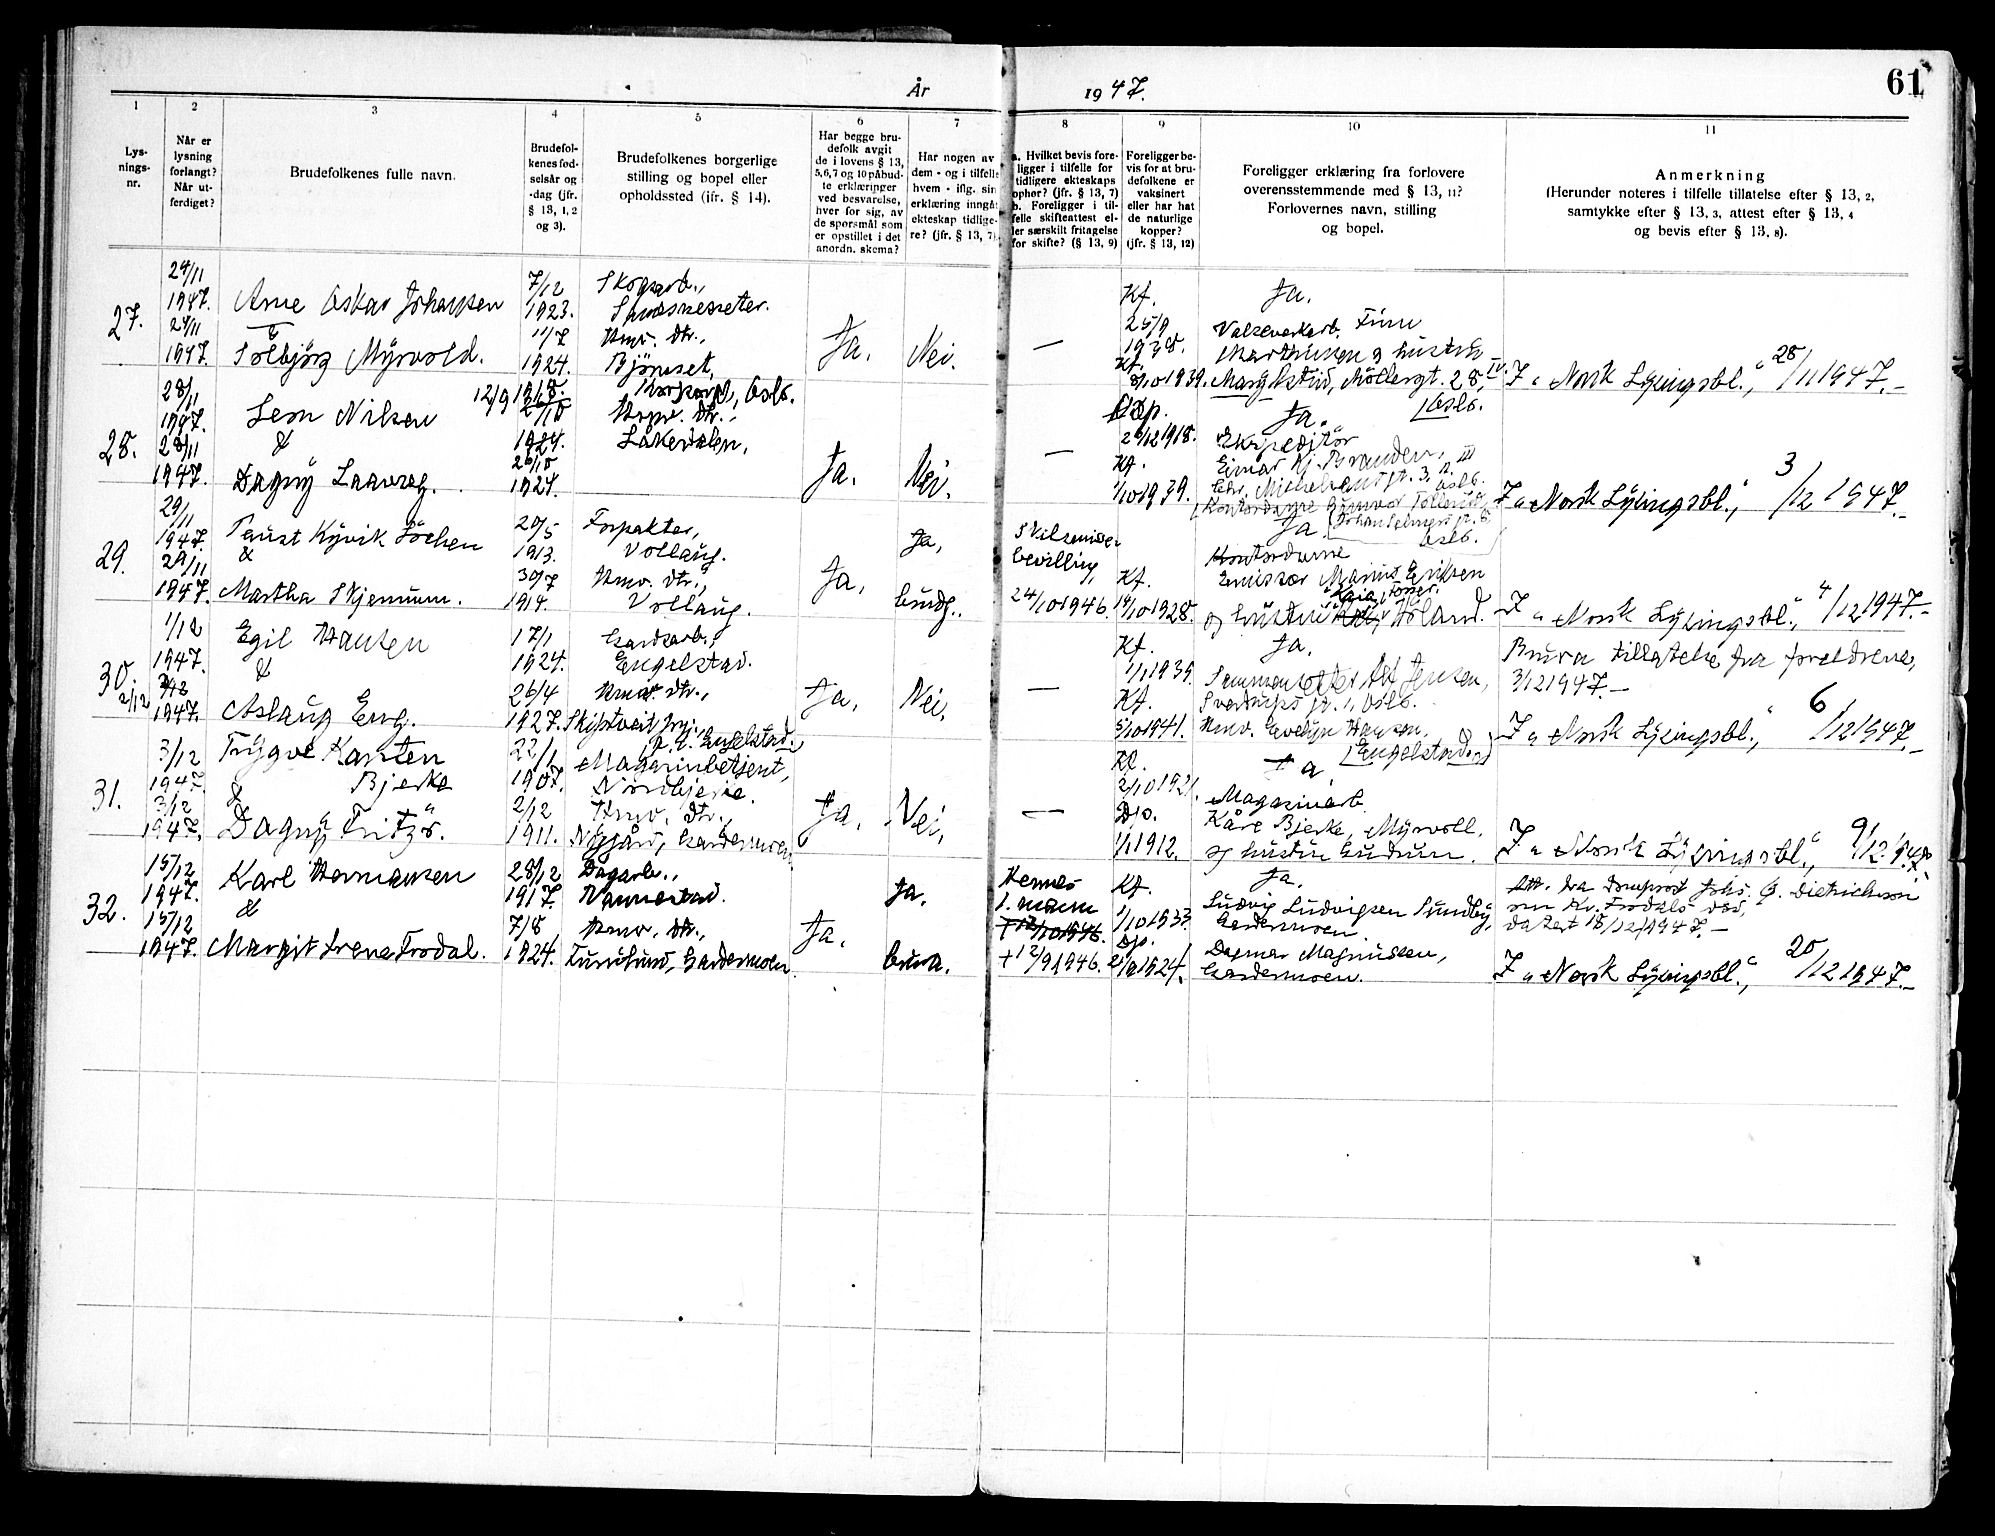 61
År 1947.
1 2 3 4 5 6 7 8 9 10 11
Lys-
nings-
nr.
Når er
lysning
forlangt?
Når ut-
ferdiget?
Brudefolkenes fulle navn.
Brudefol-
kenes fød-
selsår og
-dag (jfr.
§ 13, 1, 2
og 3).
Brudefolkenes borgerlige
stilling og bopel eller
opholdssted (jfr. § 14).
Har begge bru-
defolk avgit
de i lovens § 13,
5,6,7 og 10 påbud-
te erklæringer
ved besvarelse,
hver for sig, av
de spørsmål som
er opstillet i det
anordn. skema?
Har nogen av
dem - og i tilfelle
hvem - iflg. sin
erklæring inngåt
ekteskap tidlige-
re? (jfr. § 13, 7).
a. Hvilket bevis fore-
ligger i tilfelle for
tidligere ekteskaps
ophør? (jfr. § 13, 7)
b. Foreligger i til-
felle skifteattest el-
ler særskilt fritagelse
for skifte? (§ 13, 9)
Foreligger be-
vis for at bru-
defolkene er
vaksinert
eller har hat
de naturlige
kopper?
(jfr. § 13, 12)
Foreligger erklæring fra forlovere
overensstemmende med § 13, 11?
Forlovernes navn, stilling
og bopel.
Anmerkning
(Herunder noteres i tilfelle tillatelse efter § 13, 2,
samtykke efter § 13, 3, attest efter § 13, 4
og bevis efter § 13, 8).
27.
24/11
1947.
24/11
1947.
Arne Oskar Johansen
&
Solbjörg Myrvold.
7/12
1923.
11/7
1924.
Skogsarb.,
Hmv. dtr.,
Björnset,
Ja.
Nei.
—
Kf.
25/9
1938.
Kf.
8/10 1939.
Ja.
Valseverkarb. Finn
Marthinsen og hustru
Möllergt. 28, IV.
Oslo.
I "Norsk Lysingsbl.", 28/11 1947.-
28.
28/11
1947.
28/11
1947.
Lem Nilsen
&
Dagny
12/9 1918.
1924.
26/10
1924.
Oslo.
Hmv. dtr.,
Låkedalen,
Ja.
Nei.
—
Dåp.
26/12 1918.
Kf.
1/10 1939.
Ja.
Ekspeditör
Einar Kj. Branden,
Chr. Michelsens gt. 3, II
Oslo.
Oslo.
I "Norsk Lysingsbl.", 3/12 1947.-
29.
29/11
1947.
29/11
1947.
Faust Kyvik Löchen
&
Martha Skjennum.
20/5
1913.
30/7
1914.
Forpakter,
Vollaug.
Hmv. dtr.,
Vollaug.
Ja.
Ja,
brudg.
Skilsmisse-
bevilling,
24/10 1946.
Kf.
14/10 1928.
Ja.
Emissær Marius Eriksen
og hustru Kaia, Höland.
I "Norsk Lysingsbl.", 4/12 1947.-
30.
2/12
1/12
1947.
2/12
1947.
Egil Hansen
&
Aslaug Eng.
17/1
1924.
26/4
1927.
Gardsarb.,
Engelstad.
Hmv. dtr.,
Skiptveit
p. t. Engelstad.
Ja.
Nei.
—
Kf.
1/11 1939.
Kf.
5/10 1941.
Ja.
Alf Jensen,
Sverdrups gt. 1, Oslo.
Hmv. Evelyn Hansen,
Engelstad.
Brura tillatelse fra foreldrene,
3/12 1947.-
I "Norsk Lysingsbl.", 6/12 1947.-
31.
3/12
1947.
3/12
1947.
Trygve Karsten
Bjerke
&
Dagny Fritzö.
22/1
1907.
2/12
1911.
Magasinbetjent,
Nordbjerke.
Hmv. dtr.,
Nygård, Gardermoen.
Ja.
Nei.
—
Kf.
2/10 1921.
Dp.
1/1 1912.
Ja.
Magasinarb.
Kåre Bjerke, Myrvoll.
og hustru Gudrun.
I "Norsk Lysingsbl.", 9/12. 1947.
32.
15/12
1947.
15/12
1947.
Karl Hermansen
&
Margit Irene Frodal.
28/12
1917.
7/8
1924.
Dagarb.,
Nannestad.
Hmv. dtr.,
Furulund, Gardermoen.
Ja.
Ja.
brura.
Hennes
1. mann
+ 12/9 1946.
Kf.
1/10 1933.
Dp.
Ja.
Ludvig Ludvigsen Sundby,
Gardermoen
Dagmar Magnussen,
Gardermoen.
Att. fra domprost Johs. Ø. Dietrichson
om Kr. Frodals död,
datert 18/12 1947.-
I "Norsk Lysingsbl.", 20/12 1947.-